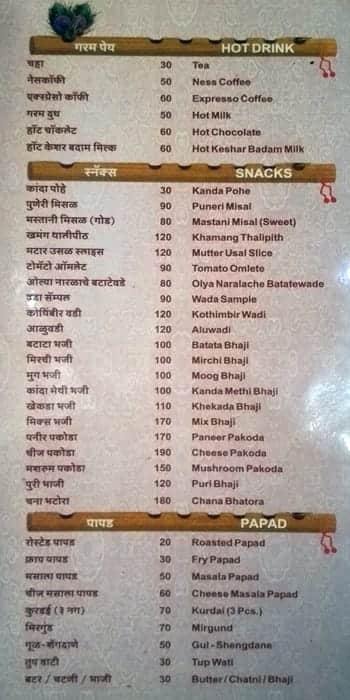 गरम पेय HOT DRINK
चहा 30 Tea
नेसकॉफी 50 Ness Coffee
एक्स्प्रेसो कॉफी 60 Expresso Coffee
गरम दुध 50 Hot Milk
हॉट चॉकलेट 60 Hot Chocolate
हॉट केशर बदाम मिल्क 60 Hot Keshar Badam Milk
स्नॅक्स SNACKS
कांदा पोहे 30 Kanda Pohe
पुणेरी मिसळ 90 Puneri Misal
मस्तानी मिसळ (गोड) 80 Mastani Misal (Sweet)
खमंग थालीपीठ 120 Khamang Thalipith
मटार उसळ स्लाइस 120 Mutter Usal Slice
टोमॅटो ऑमलेट 90 Tomato Omlete
ओल्या नारळाचे बटाटेवडे 80 Olya Naralache Batatewade
वडा सॅम्पल 90 Wada Sample
कोथिंबीर वडी 120 Kothimbir Wadi
आळुवडी 120 Aluwadi
बटाटा भजी 100 Batata Bhaji
मिरची भजी 100 Mirchi Bhaji
मुग भजी 100 Moog Bhaji
कांदा मेथी भजी 100 Kanda Methi Bhaji
खेकडा भजी 110 Khekada Bhaji
मिक्स भजी 170 Mix Bhaji
पनीर पकोडा 170 Paneer Pakoda
चीज पकोडा 190 Cheese Pakoda
मशरुम पकोडा 150 Mushroom Pakoda
पुरी भाजी 120 Puri Bhaji
चना भटोरा 180 Chana Bhatora
पापड PAPAD
रोस्टेड पापड 20 Roasted Papad
फ्राय पापड 30 Fry Papad
मसाला पापड 50 Masala Papad
चीज मसाला पापड 60 Cheese Masala Papad
कुरडई (३ नग) 70 Kurdai (3 Pcs.)
मिरगुंड 70 Mirgund
गूळ-शेंगदाणे 50 Gul - Shengdane
तुप वाटी 30 Tup Wati
बटर / चटणी / भाजी 30 Butter / Chatni / Bhaji